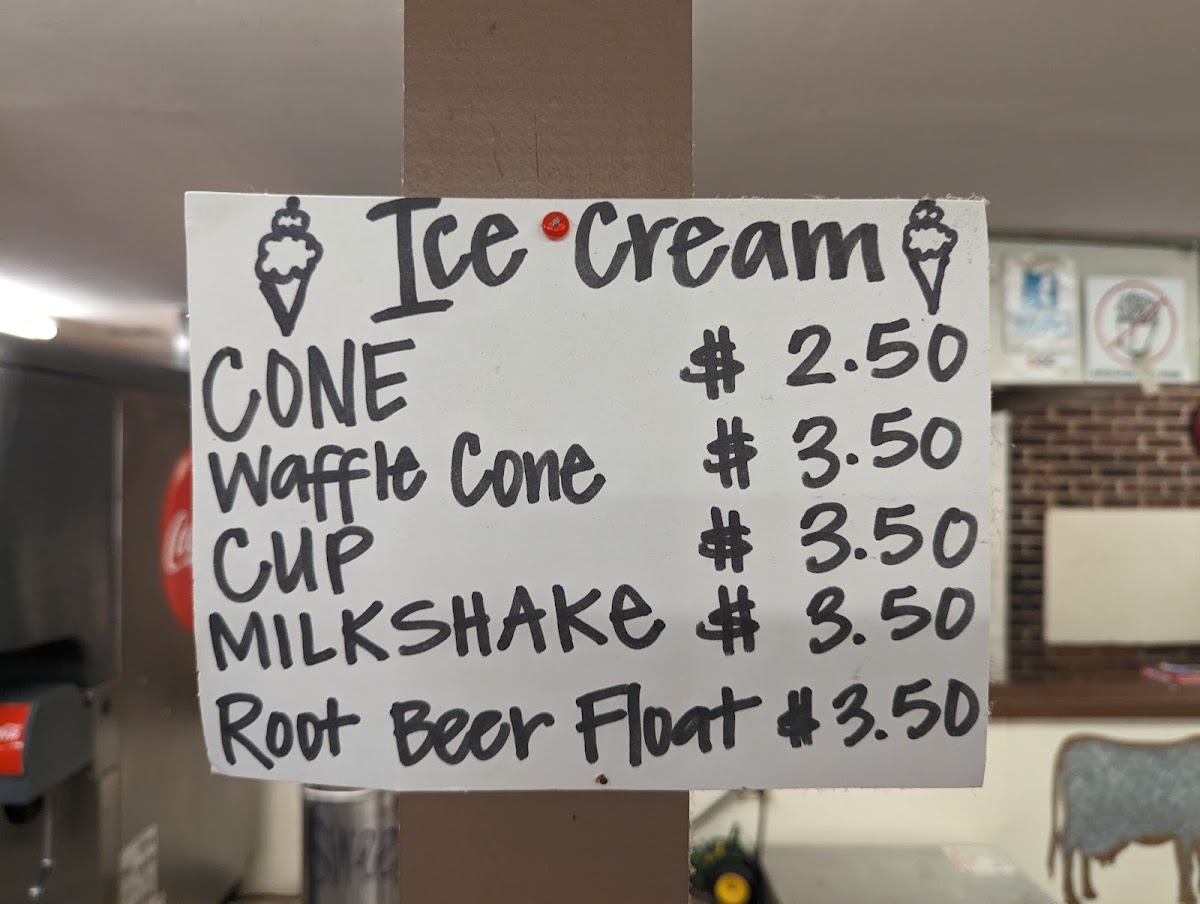 Ice Cream
CONE $ 2.50
Waffle Cone $ 3.50
CUP $ 3.50
MILKSHAKE $ 3.50
Root Beer Float $3.50